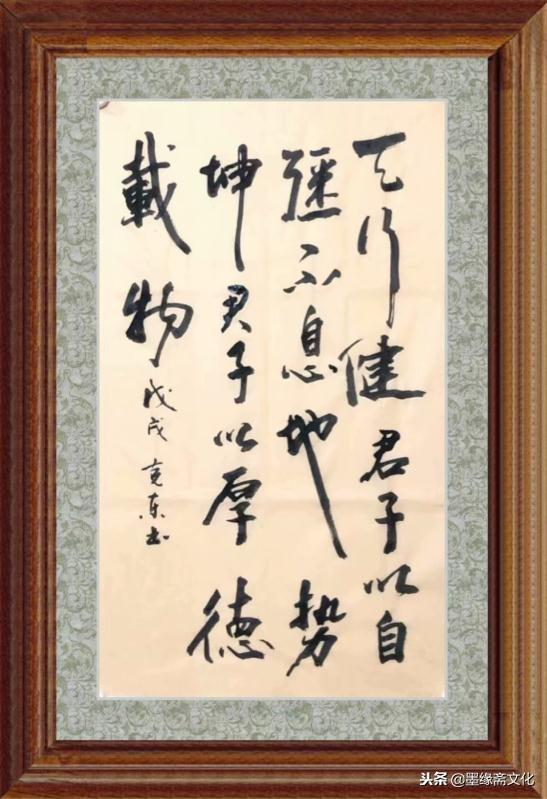 天行健君子以自
彊不息地势
坤君子以厚德
載物
戊戌 东书
头条 @墨缘斋文化